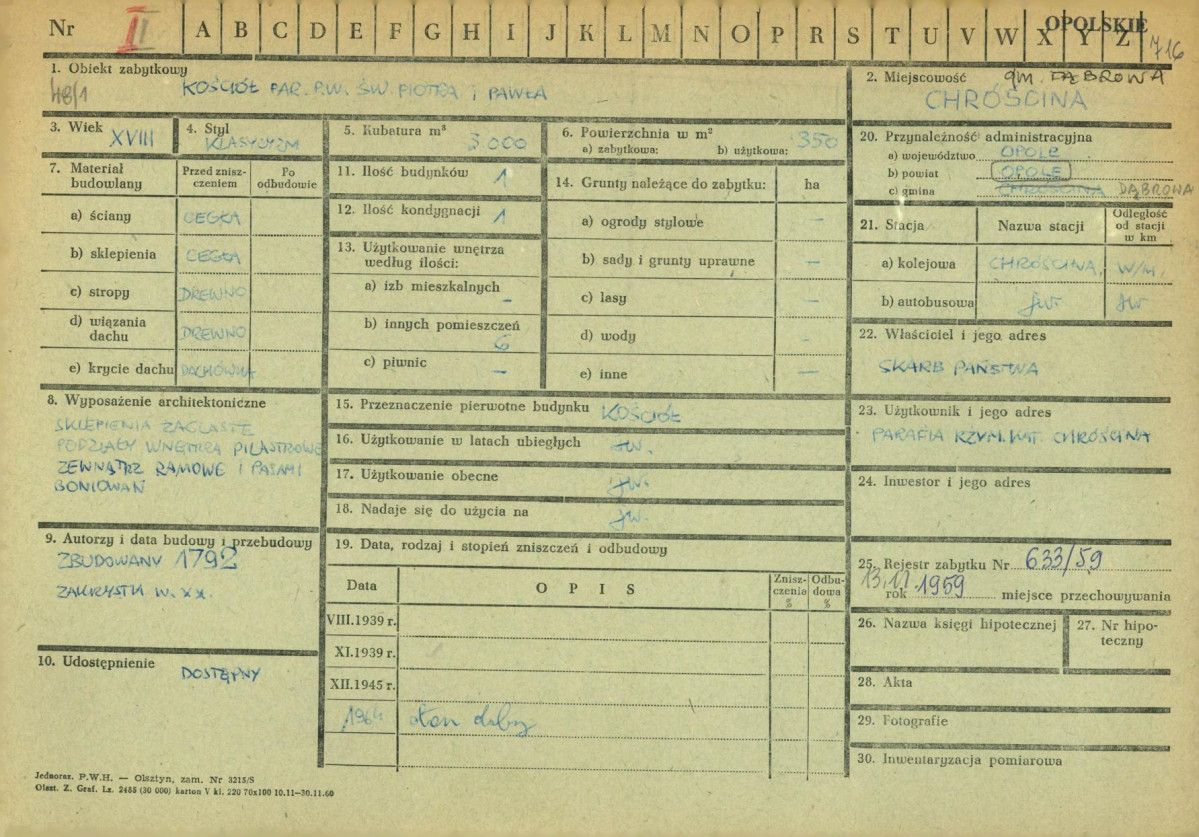 Nr II A B C D E F G H I J K L M N O P R S T U V W X Y Z
OPOLSKIE
716
1. Obiekt zabytkowy
48/1
KOŚCIÓŁ PAR. P.W. ŚW. PIOTRA I PAWŁA
2. Miejscowość gm. DĄBROWA
CHRÓŚCINA
3. Wiek
XVIII
4. Styl
KLASYCYZM
5. Kubatura m³
3.000
6. Powierzchnia w m²
a) zabytkowa: b) użytkowa: 350
7. Materiał budowlany
Przed zniszczeniem
Po odbudowie
a) ściany CEGŁA
b) sklepienia CEGŁA
c) stropy DREWNO
d) wiązania dachu DREWNO
e) krycie dachu DACHÓWKA
11. Ilość budynków 1
12. Ilość kondygnacji 1
13. Użytkowanie wnętrza według ilości:
a) izb mieszkalnych –
b) innych pomieszczeń 5
c) piwnic –
14. Grunty należące do zabytku: ha
a) ogrody stylowe –
b) sady i grunty uprawne –
c) lasy –
d) wody –
e) inne –
20. Przynależność administracyjna
a) województwo OPOLE
b) powiat OPOLE
c) gmina CHRÓŚCINA DĄBROWA
21. Stacja Nazwa stacji Odległość od stacji w km
a) kolejowa CHRÓŚCINA W/M.
b) autobusowa jw. jw
22. Właściciel i jego adres
SKARB PAŃSTWA
8. Wyposażenie architektoniczne
SKLEPIENIA ŻAGLASTE
PODZIAŁY WNĘTRZA PILASTROWE
ZEWNĄTRZ RAMOWE I PASAMI
BONIOWAŃ
15. Przeznaczenie pierwotne budynku KOŚCIÓŁ
16. Użytkowanie w latach ubiegłych jw.
17. Użytkowanie obecne jw.
18. Nadaje się do użycia na jw.
23. Użytkownik i jego adres
PARAFIA RZYM. KAT. CHRÓŚCINA
24. Inwestor i jego adres
9. Autorzy i data budowy i przebudowy
ZBUDOWANY 1792
ZAKRYSTIA W. XX.
10. Udostępnienie
DOSTĘPNY
19. Data, rodzaj i stopień zniszczeń i odbudowy
Data OPIS Zniszczenia % Odbudowa %
VIII.1939 r.
XI.1939 r.
XII.1945 r.
1964 stan dobry
25. Rejestr zabytku Nr 633/59
rok 1959 miejsce przechowywania
26. Nazwa księgi hipotecznej
27. Nr hipoteczny
28. Akta
29. Fotografie
30. Inwentaryzacja pomiarowa
Jednoraz. P.W.H. — Olsztyn, zam. Nr 3215/S
Olszt. Z. Graf. Lz. 2485 (30 000) karton V kl. 220 70x100 10.11—30.11.60